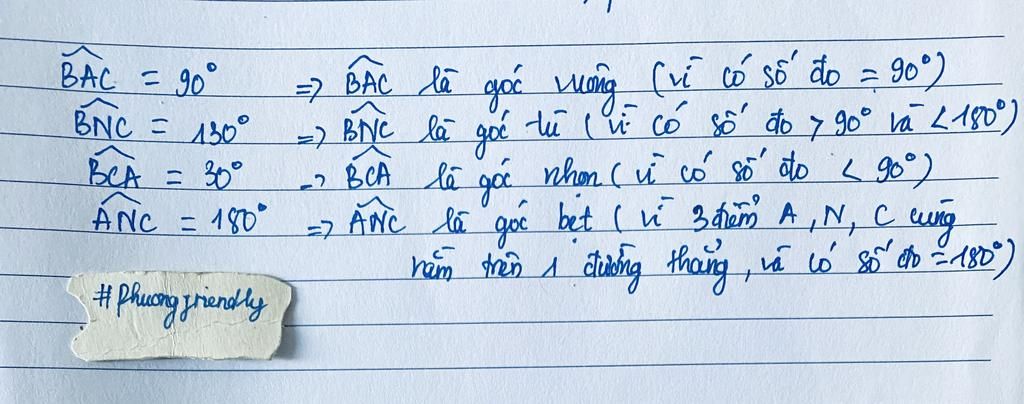 BAC = 90° => BAC là góc vuông (vì có số đo = 90°)
BNC = 130° => BNC là góc tù (vì có số đo > 90° và < 180°)
BCA = 30° -> BCA là góc nhọn (vì có số đo < 90°)
ANC = 180° => ANC là góc bẹt (vì 3 điểm A, N, C cùng
nằm trên 1 đường thẳng, và có số đo = 180°)
#phuongfriendly